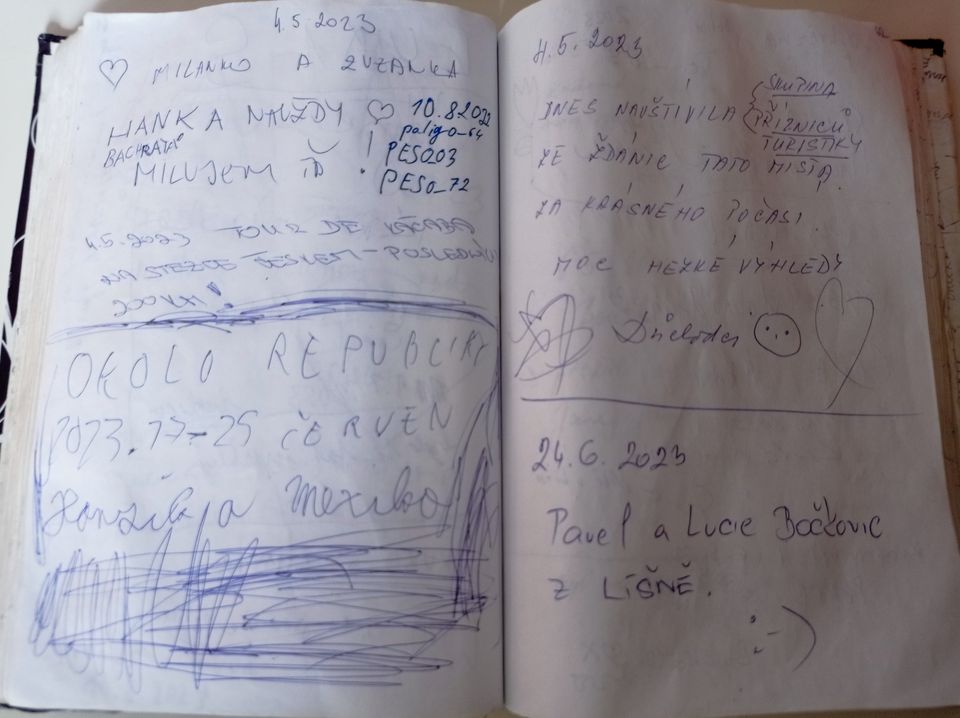 4.5.2023
MILANKO A ZUZANKA
HANKA NAVŽDY
BACHRATÁ
MILUJEM ŤA !
10.8.2022
paligo_64
PESO03
PESO_72
4.5.2023 TOUR DE
NA STEZCE ČESKEM - POSLEDNÍCH
200KM!
OKOLO REPUBLIKY
2023.17-25 ČERVEN
Honzík a
4.5.2023
DNES NAVŠTÍVILA SKUPINA
PŘÍZNICŮ
TURISTIKY
ZE ŽDÁNIC TATO MÍSTA.
ZA KRÁSNÉHO POČASÍ.
MOC HEZKÉ VÝHLEDY
Důchodci
24.6.2023
Pavel a Lucie Bočkovic
z LÍŠNĚ.
:-)